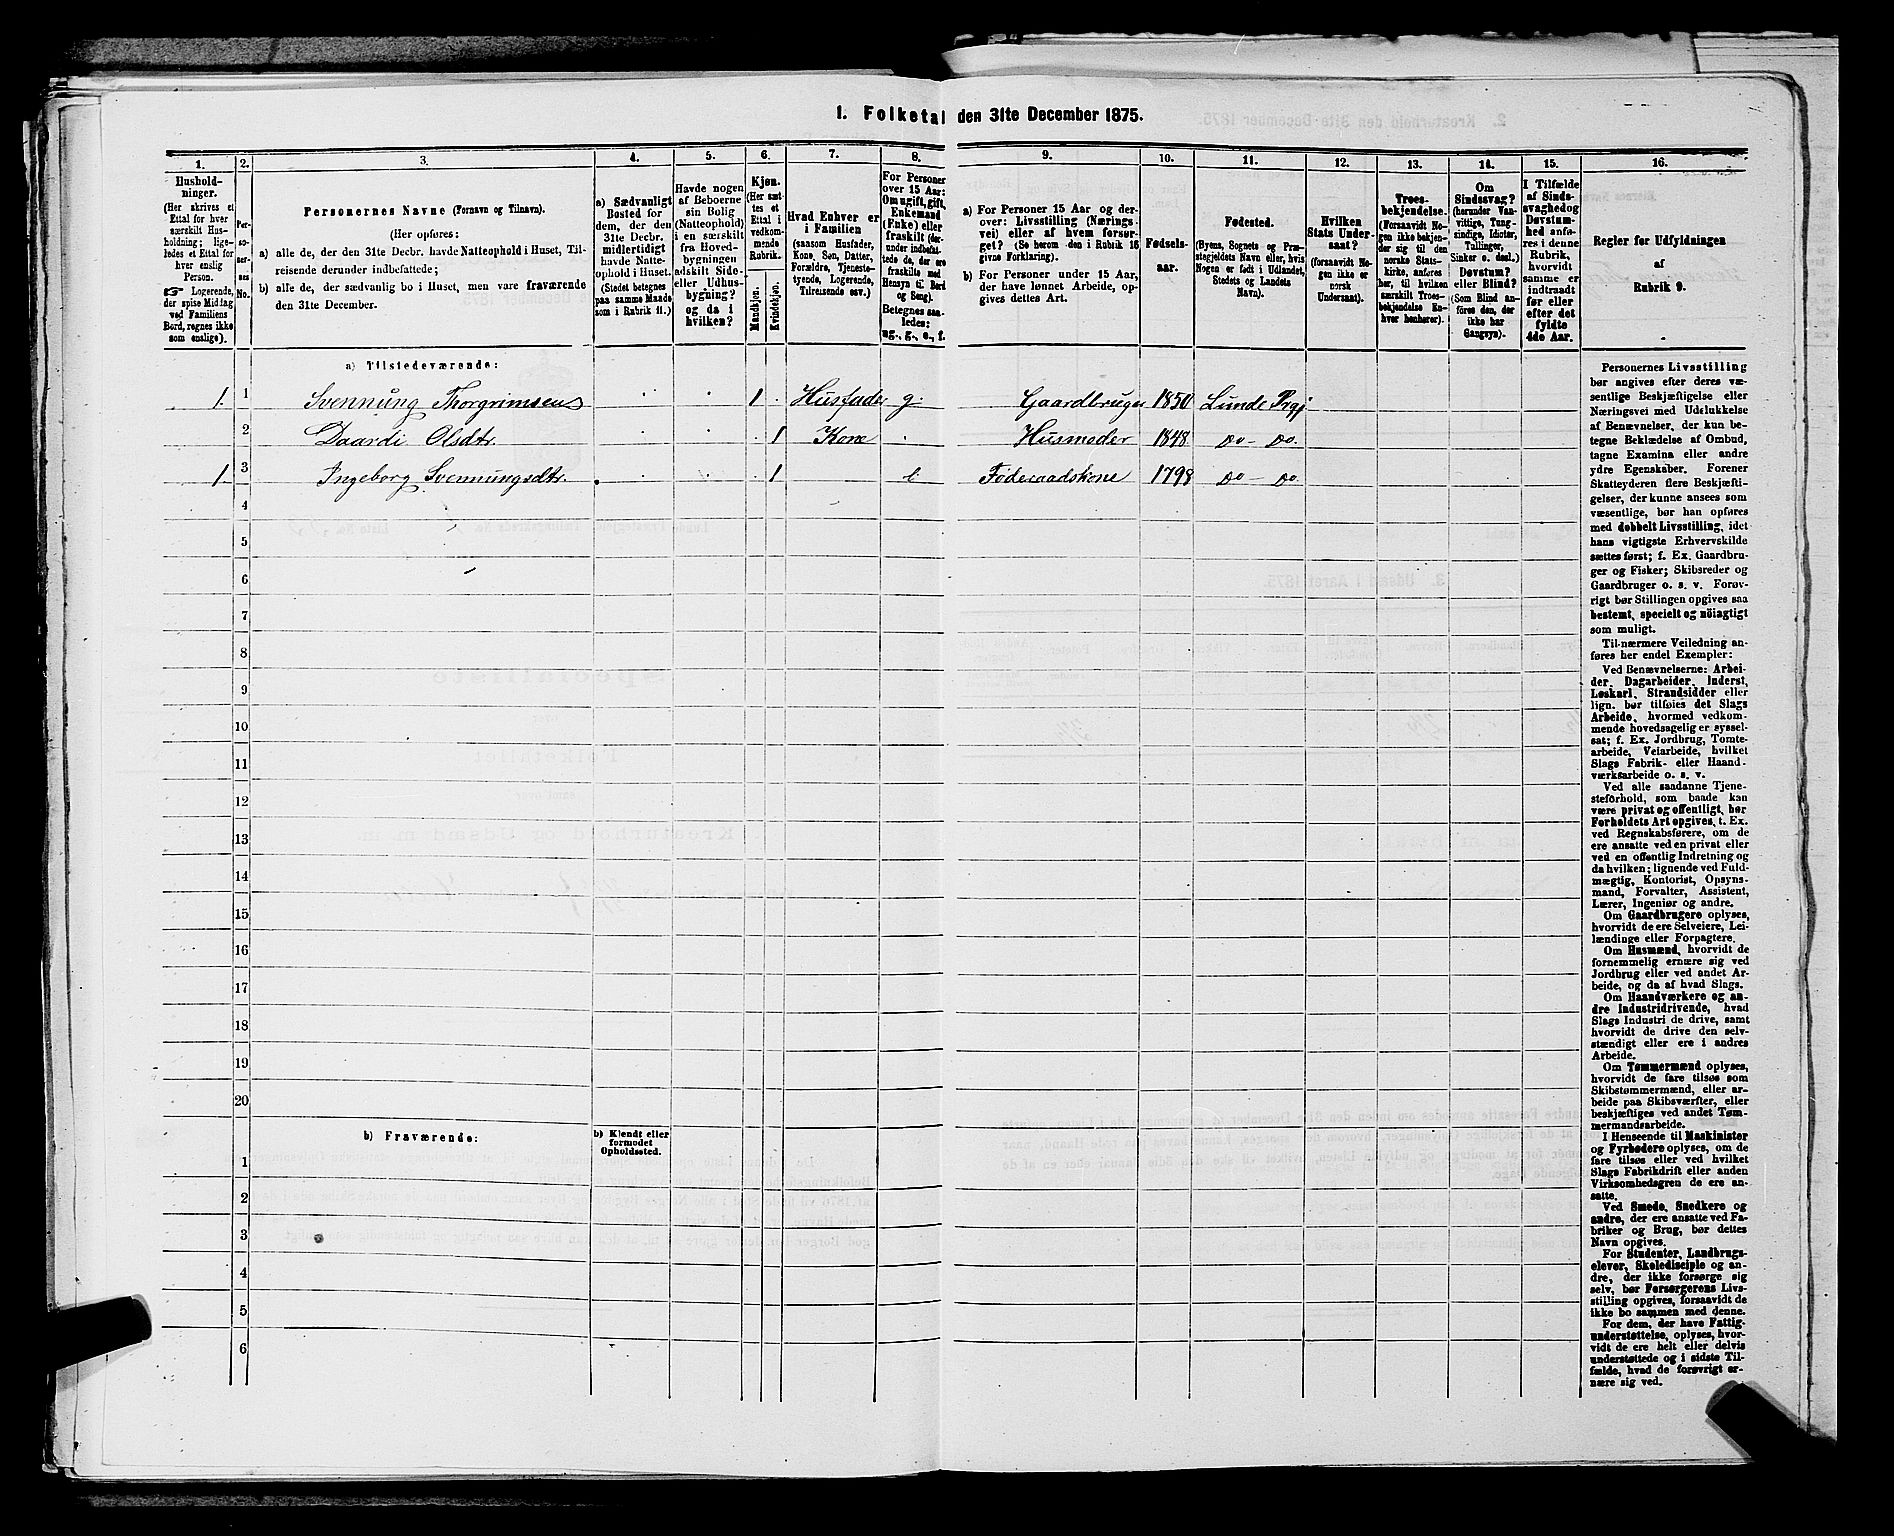 1. Folketal den 31te December 1875.
1.
2.
3.
4.
5.
6.
7.
8.
9.
10.
11.
12.
13.
14.
15.
16.
Husholdninger.
(Her skrives et
Ettal for hver
særskilt Husholdning;
ligeledes et Ettal for
hver enslig
Person.
☞ Logerende,
der spise Middag
ved Familiens
Bord, regnes ikke
som enslige).
Personernes No.
Personernes Navne (Fornavn og Tilnavn).
(Her opføres:
a) alle de, der den 31te Decbr. havde Natteophold i Huset, Tilreisende derunder indbefattede;
b) alle de, der sædvanlig bo i Huset, men vare fraværende
den 31te December.
a) Sædvanligt
Bosted for
dem, der den
31te Decbr.
midlertidigt
havde Natteophold i Huset.
(Stedet betegnes
paa samme Maade
som i Rubrik 11.)
Havde nogen
af Beboerne
sin Bolig
(Natteophold)
i en særskilt
fra Hovedbygningen
adskilt Side- eller Udhusbygning?
og da i
hvilken?
Kjøn.
(Her sættes et
Ettal i
vedkommende
Rubrik.
Mandkjøn.
Kvindekjøn.
Hvad Enhver er
i Familien
(saasom Husfader,
Kone, Søn, Datter,
Forældre, Tjenestetyende, Logerende,
Tilreisende osv.)
For Personer
over 15 Aar:
Om ugift, gift,
Enkemand
(Enke) eller
fraskilt (derunder indbefattede de, der ere
fraskilte med
Hensyn til Bord
og Seng).
Betegnes saaledes:
ug., g., e., f.
a) For Personer 15 Aar og derover: Livsstilling (Næringsvei) eller af hvem forsørget? (Se herom den i Rubrik 16
givne Forklaring).
b) For Personer under 15 Aar,
der have lønnet Arbeide, opgives dettes Art.
Fødselsaar.
Fødested.
(Byens, Sognets og Præstegjeldets Navn eller, hvis
Nogen er født i Udlandet,
Stedets og Landets
Navn).
Hvilken
Stats Undersaat?
(forsaavidt Nogen ikke er
norsk
Undersaat).
Troesbekjendelse.
(Forsaavidt Nogen ikke bekjender sig til den
norske Statskirke, anføres
her, til hvilken
særskilt Troesbekjendelse Enhver henhører).
Om
Sindssvag?
(herunder Vanvittige, Tungsindige, Idioter,
Tullinger,
Sinker o. desl.)
Døvstum?
eller Blind?
(Som Blind anføres den, der
ikke har
Gangsyn).
I Tilfælde
af Sindssvaghed og
Døvstumhed anføres i denne
Rubrik,
hvorvidt
samme er
indtraadt
før eller
efter det
fyldte
4de Aar.
Regler for Udfyldningen
af
Rubrik 9.
a) Tilstedeværende:
1. 1 Svennung Thorgrimsen 1 Husfader g. Gaardbruger 1850 Lunde Prgj
2 Daardi Olsdtr. 1 Kone Husmoder 1848 do – do.
1. 3 Ingeborg Svennungsdtr. 1 Føderaadskone 1798 do – do
4
5
6
7
8
9
10
11
12
13
14
15
16
17
18
19
20
b) Fraværende:
b) Kjendt eller
formodet
Opholdssted.
1
2
3
4
5
6
Personernes Livsstilling
bør angives efter deres væsentlige Beskjæftigelse eller
Næringsvei med Udelukkelse
af Benævnelser, der kun betegne Beklædelse af Ombud,
tagne Examina eller andre
ydre Egenskaber. Forener
Skatteyderen flere Beskjæftigelser, der kunne ansees som
væsentlige, bør han opføres
med dobbelt Livsstilling, idet
hans vigtigste Erhvervskilde
sættes først; f. Ex. Gaardbruger og Fisker; Skibsreder og
Gaardbruger o. s. v. Forøvrigt bør Stillingen opgives saa
bestemt, specielt og nöiagtigt
som muligt.
Til nærmere Veiledning anføres her endel Exempler:
Ved Benævnelserne: Arbeider, Dagarbeider, Inderst,
Løskarl, Strandsidder eller
lign. bør tilføies det Slags
Arbeide, hvormed vedkommende hovedsagelig er sysselsat; f. Ex. Jordbrug, Tomtearbeide, Veiarbeide, hvilket
Slags Fabrik- eller Haandværksarbeide o. s. v.
Ved alle saadanne Tjenesteforhold, som baade kan
være privat og offentligt, bør
Forholdets Art opgives, t. Ex.
ved Regnskabsførere, om de
ere ansatte ved en privat eller
ved en offentlig Indretning og
da hvilken; lignende ved Fuldmægtig, Kontorist, Opsynsmand, Forvalter, Assistent,
Lærer, Ingeniør og andre.
Om Gaardbrugere oplyses,
hvorvidt de ere Selveiere, Leilændinge eller Forpagtere.
Om Husmænd, hvorvidt de
fornemmelig ernære sig ved
Jordbrug eller ved andet Arbeide, og da af hvad Slags.
Om Haandværkere og andre Industridrivende, hvad
Slags Industri de drive, samt
hvorvidt de drive den selvstændigt eller ere i andres
Arbeide.
Om Tømmermænd oplyses,
hvorvidt de fare tilsøs som
Skibstømmermænd, eller arbeide paa Skibsværfter, eller
beskjæftiges ved andet Tømmermandsarbeide.
I Henseende til Maskinister
og Fyrbødere oplyses, om de
fare tilsøs eller ved hvilket
Slags Fabrikdrift eller anden
Virksomhedsgren de ere ansatte.
Ved Smede, Snedkere og
andre, der ere ansatte ved Fabriker og Brug, bør dettes
Navn opgives.
For Studenter, Landbrugselever, Skoledisciple og andre, der ikke forsørge sig
selv, bør Forsørgerens Livsstilling opgives, forsaavidt de
ikke bo sammen med denne.
For dem, der have Fattigunderstøttelse, oplyses, hvorvidt de ere helt eller delvis
understøttede og i sidste Tilfælde, hvad de forøvrigt ernære sig ved.